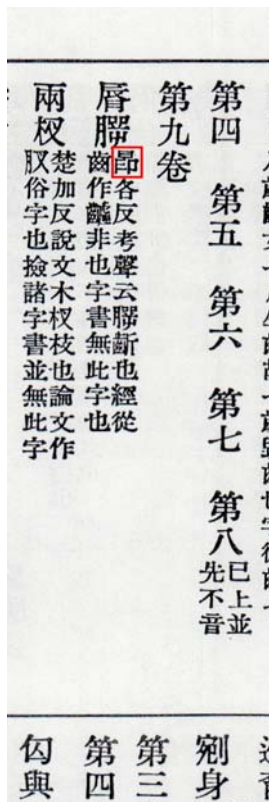 第四　第五　第六　第七　第八已上並
先不音
第九卷
脣腭昻各反考聲云腭齗也經從
齒作齶非也字書無此字也
兩杈楚加反說文木杈枝也論文作
肞俗字也撿諸字書並無此字
剜身
第三
第四
匃與